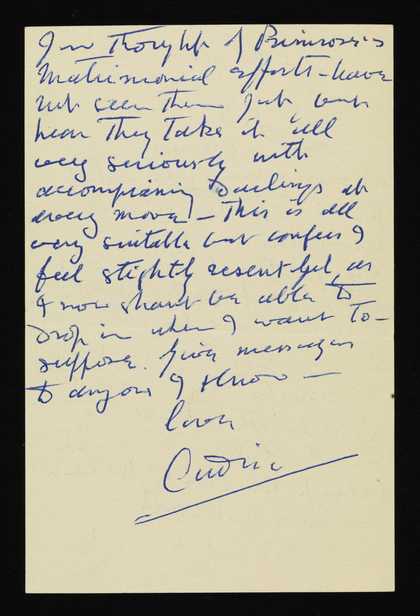 I'm thoughtful of Primrose's
Matrimonial efforts – have
not seen them yet, but
hear they take it all
very seriously with
accompanying Darlings at
every move – This is all
very suitable but confess I
feel slightly resentful, as
I now shant be able to
drop in when I want to –
suppose. Give messages
to anyone I know –
love
Cedric